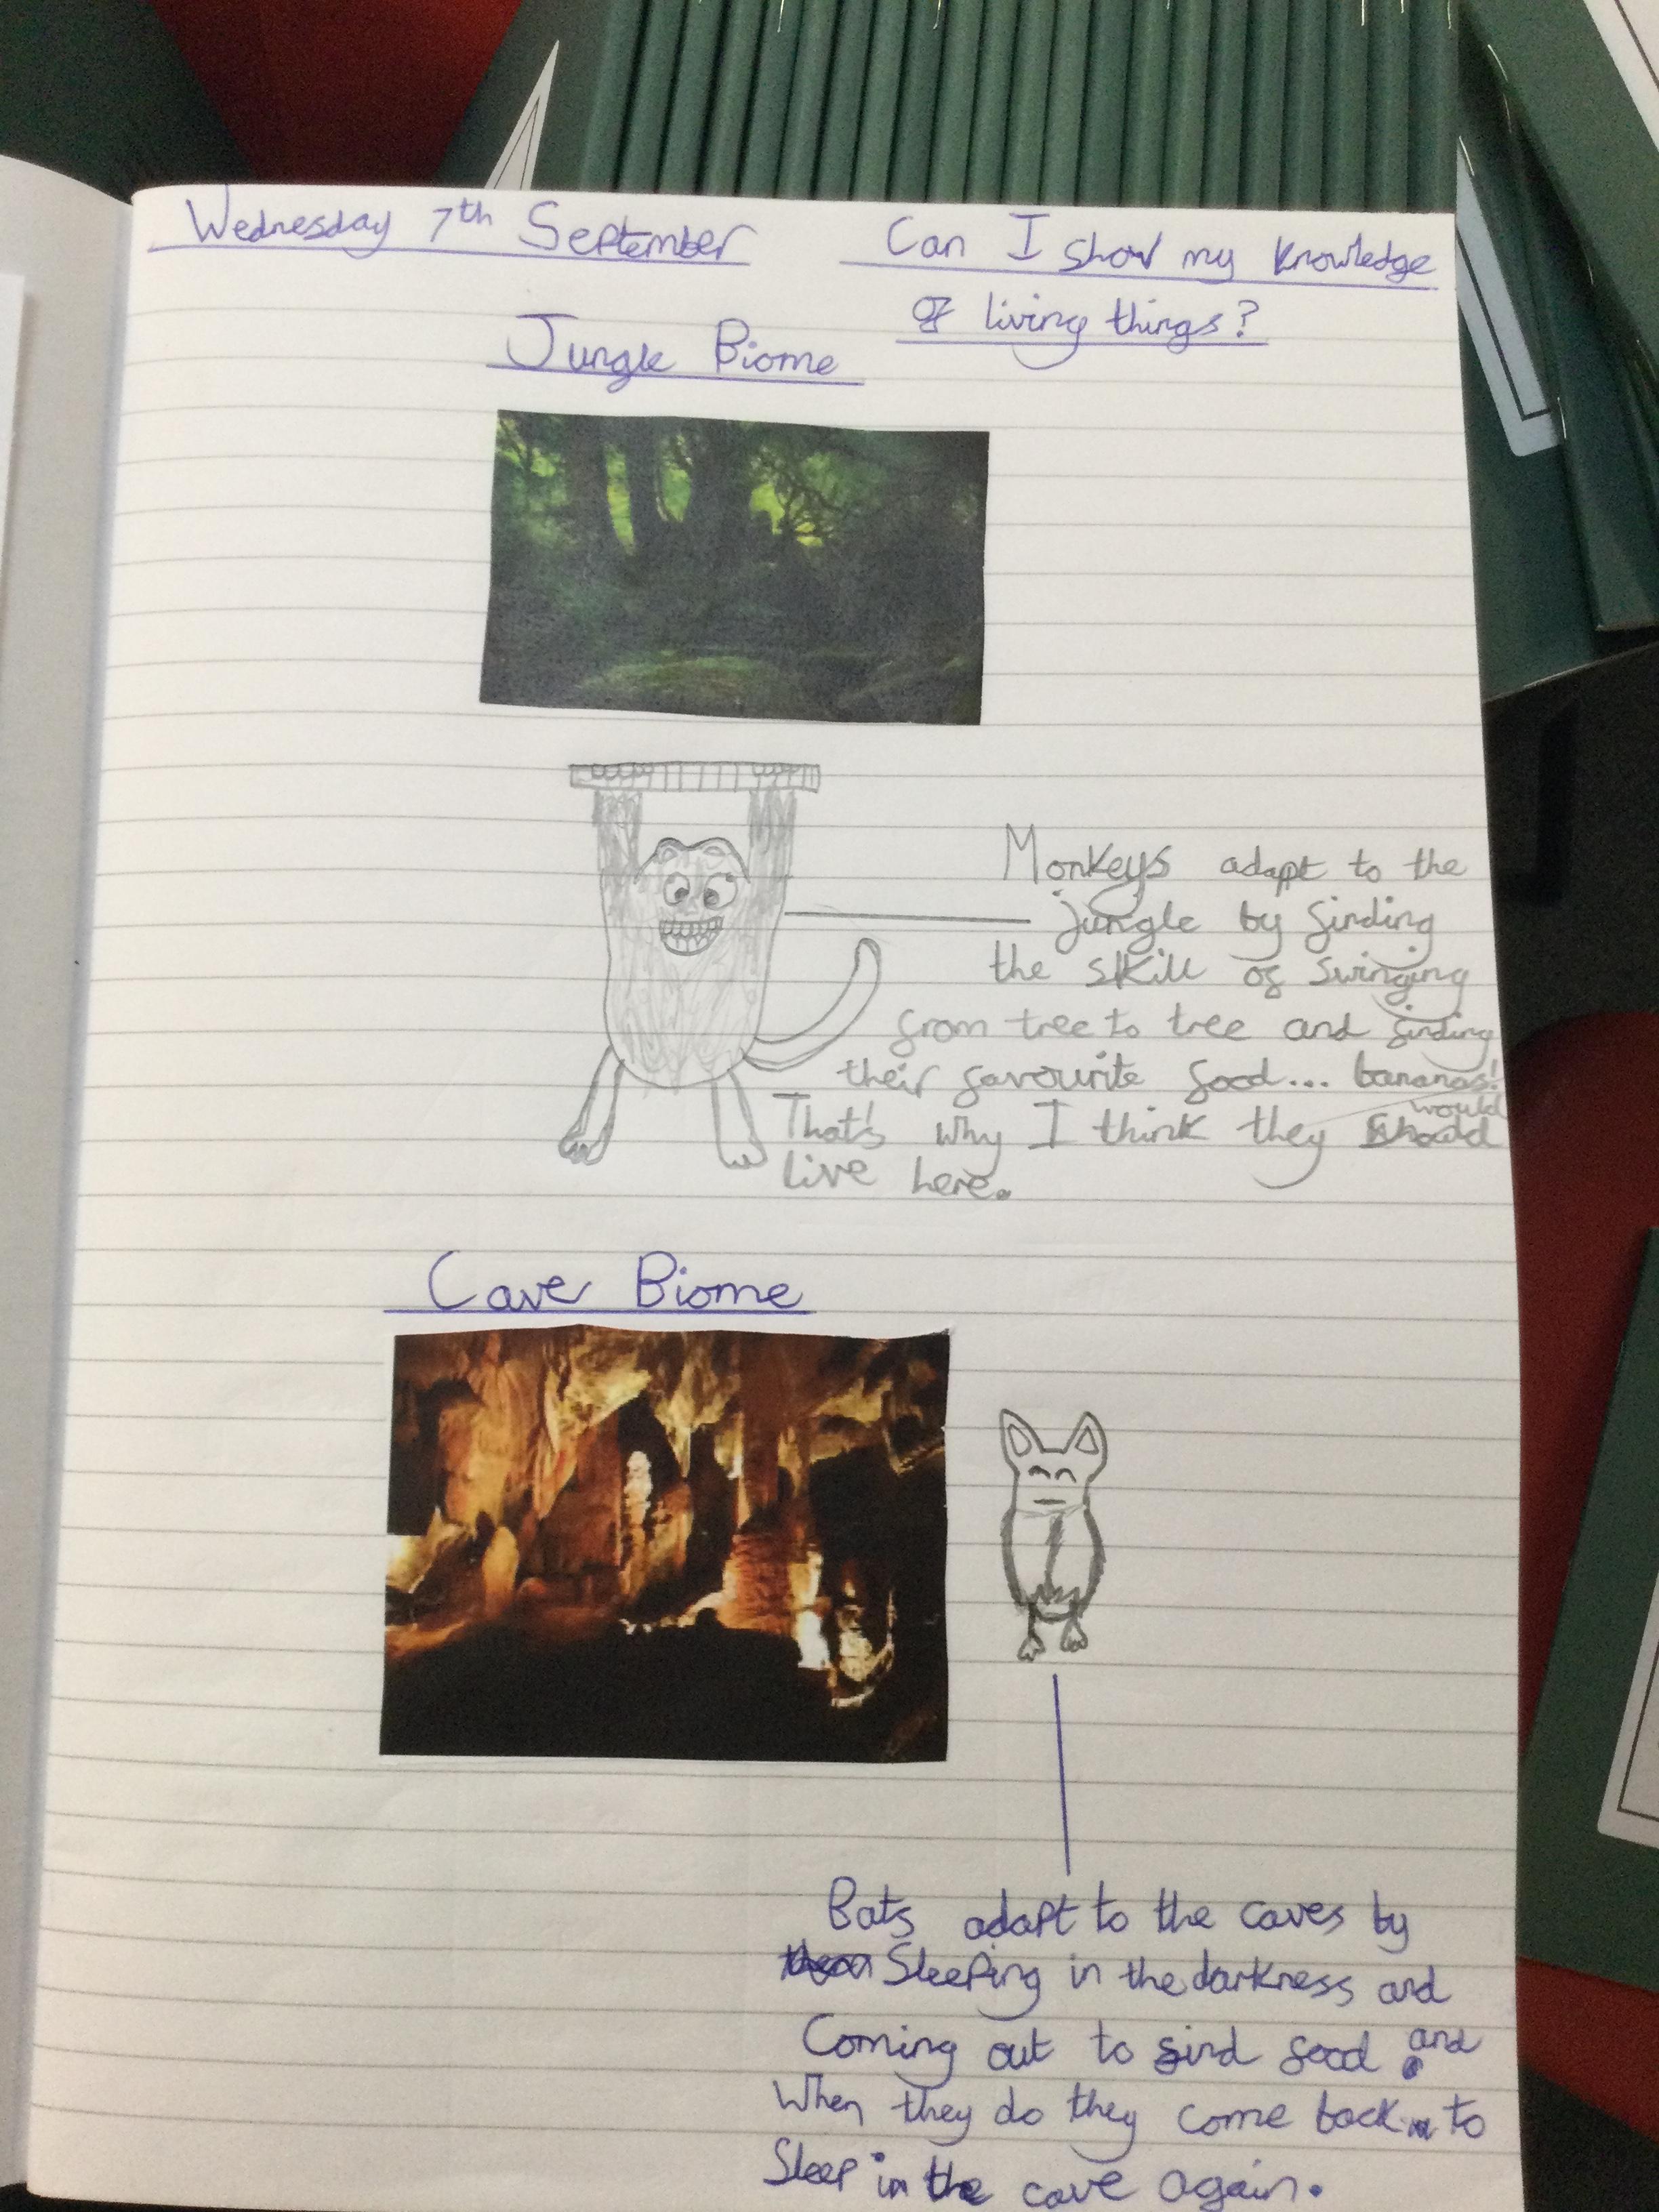 Wednesday 7th September
Can I show my knowledge
of living things?
Jungle Biome
Monkeys adapt to the
jungle by finding
the skill of swinging
from tree to tree and finding
their favourite food... bananas!
would
That's why I think they should
live here.
Cave Biome
Bats adapt to the caves by
Sleeping in the darkness and
Coming out to find food and
When they do they come back to
Sleep in the cave again.